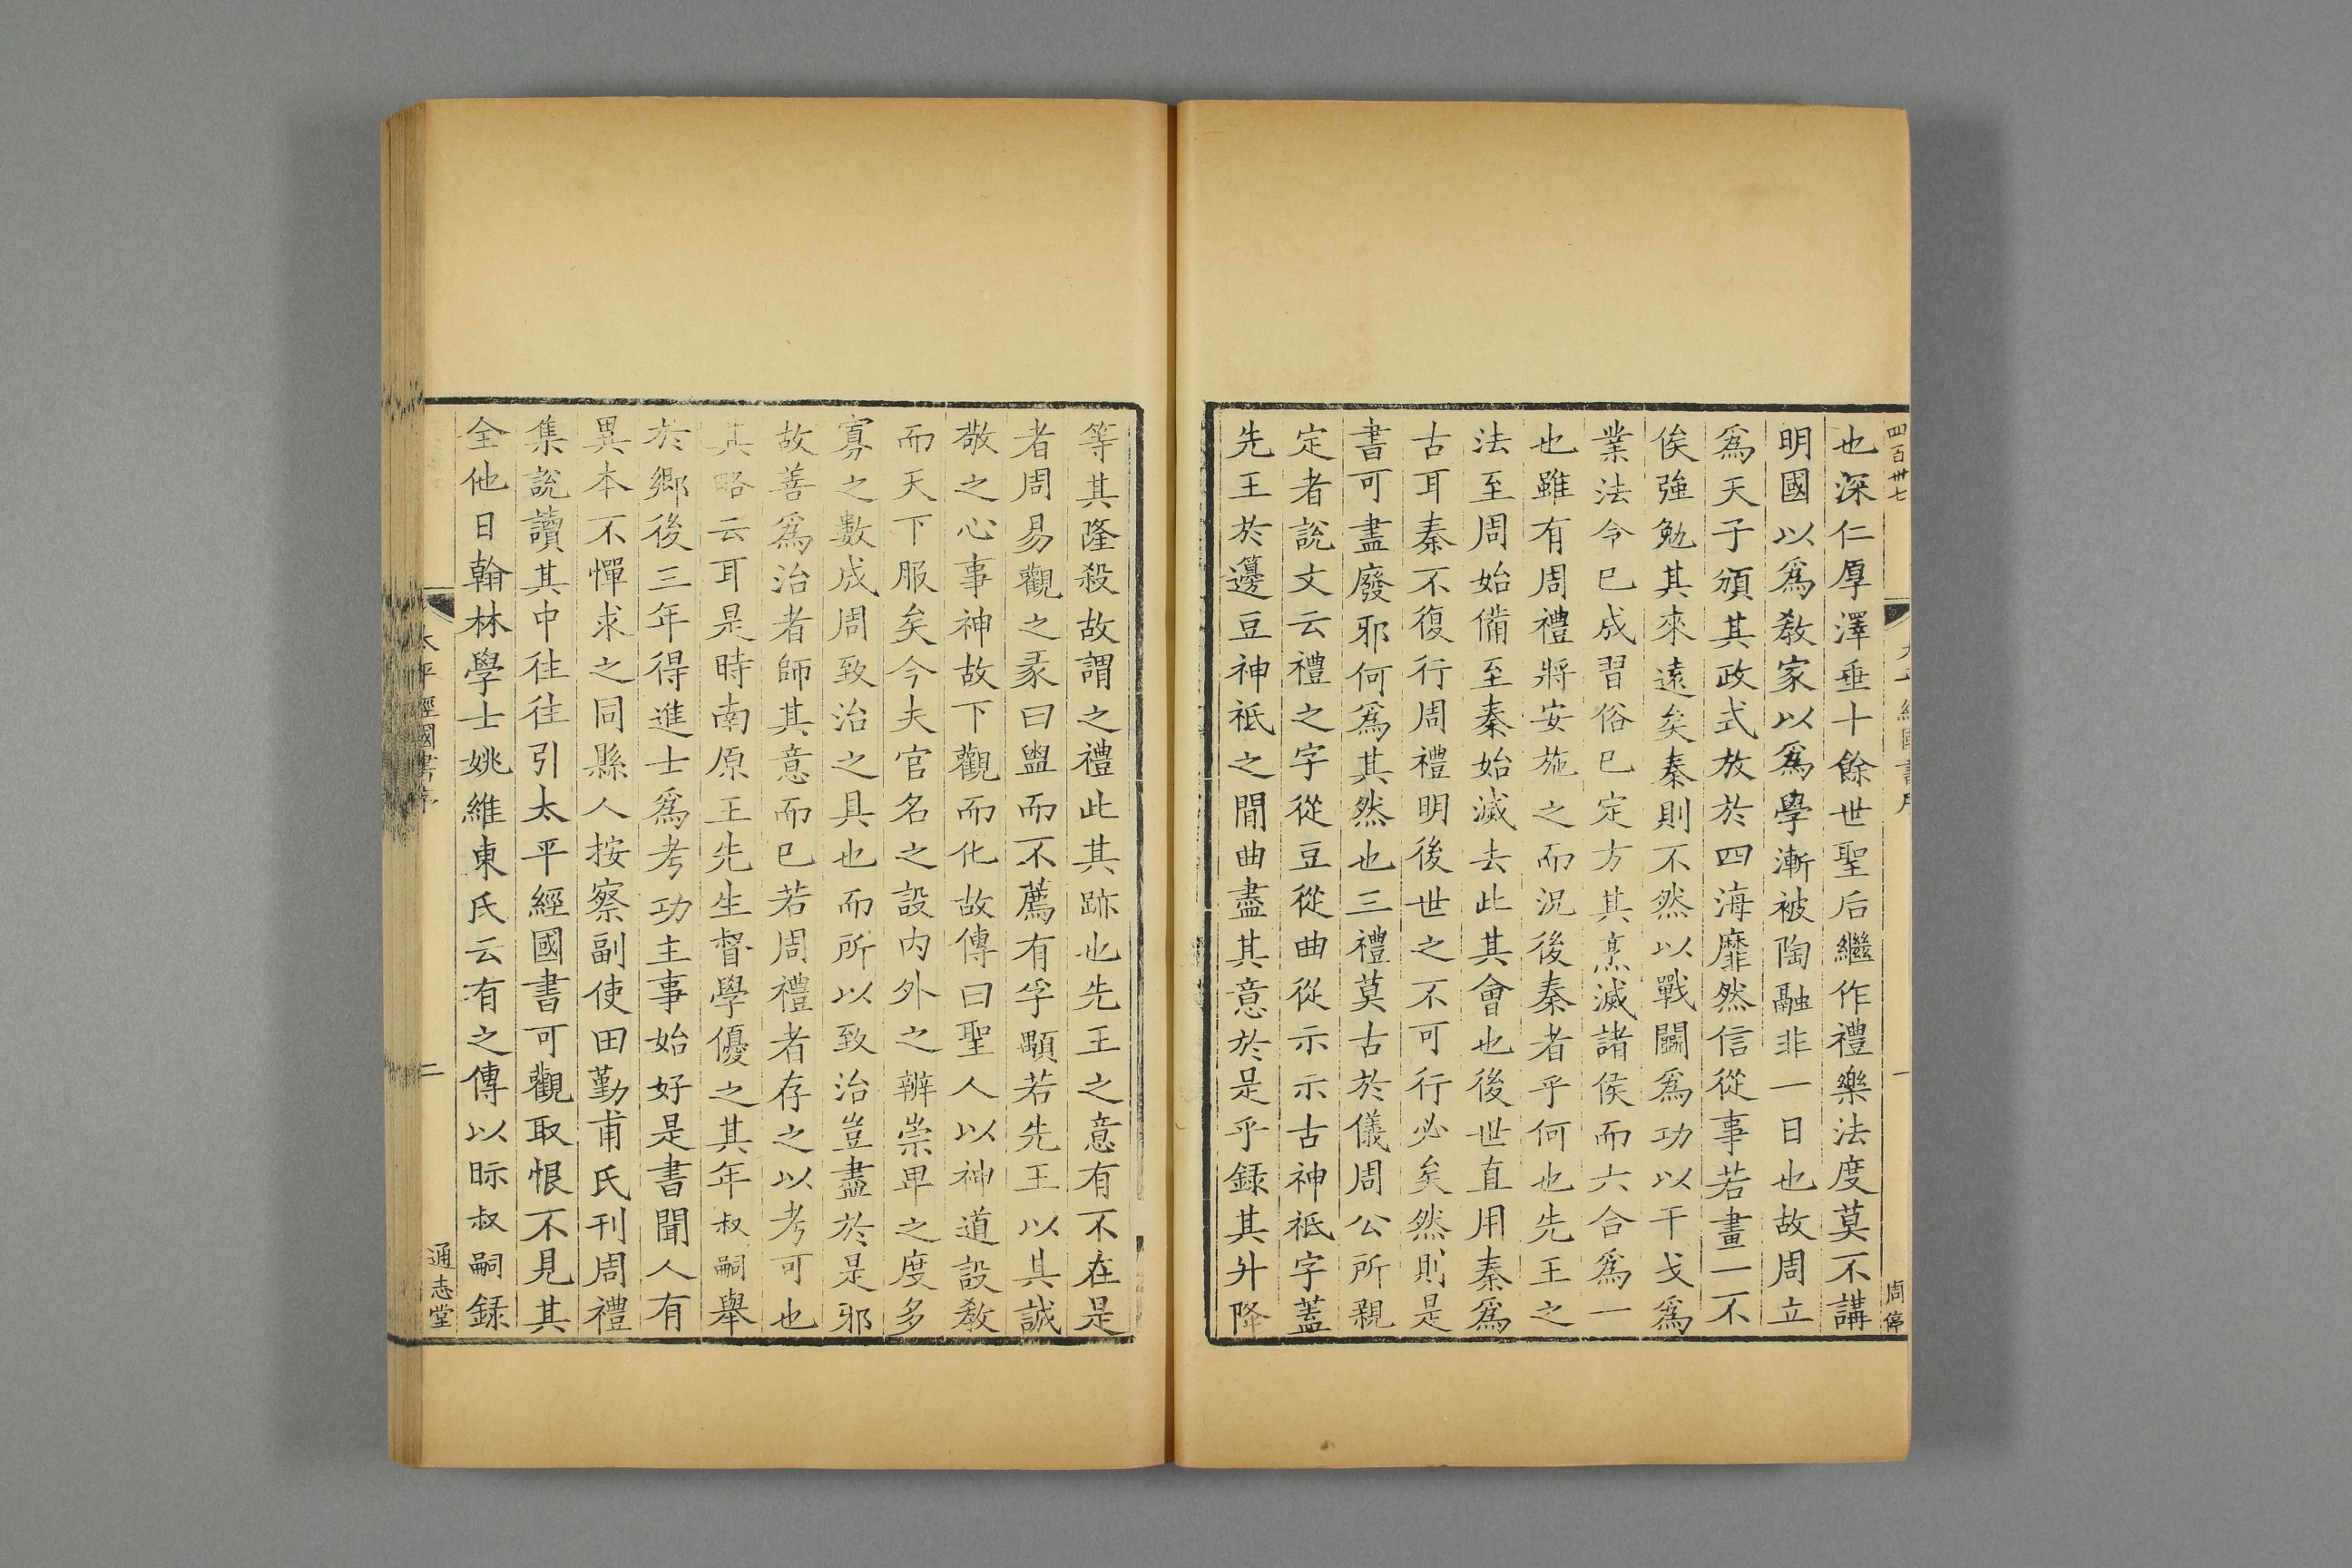 四百卅七
周儁
也深仁厚澤垂十餘世聖后繼作禮樂法度莫不講
明國以爲教家以爲學漸被陶融非一日也故周立
爲天子頒其政式放於四海靡然信從事若畫一不
俟強勉其來遠矣秦則不然以戰鬭爲功以干戈爲
業法令已成習俗已定方其烹滅諸侯而六合爲一
也雖有周禮將安施之而況後秦者乎何也先王之
法至周始備至秦始滅去此其會也後世直用秦爲
古耳秦不復行周禮明後世之不可行必矣然則是
書可盡廢邪何爲其然也三禮莫古於儀周公所親
定者說文云禮之字從豆從曲從示示古神祇字蓋
先王於籩豆神祇之間曲盡其意於是乎録其升降
等其隆殺故謂之禮此其跡也先王之意有不在是
者周易觀之彖曰盥而不薦有孚顒若先王以其誠
敬之心事神故下觀而化故傳曰聖人以神道設教
而天下服矣今夫官名之設内外之辨崇卑之度多
寡之數成周致治之具也而所以致治豈盡於是邪
故善爲治者師其意而已若周禮者存之以考可也
其略云耳是時南原王先生督學優之其年叔嗣舉
於鄉後三年得進士爲考功主事始好是書聞人有
異本不憚求之同縣人按察副使田勤甫氏刊周禮
集說讀其中往往引太平經國書可觀取恨不見其
全他日翰林學士姚維東氏云有之傳以眎叔嗣録
太平經國書序
二
通志堂